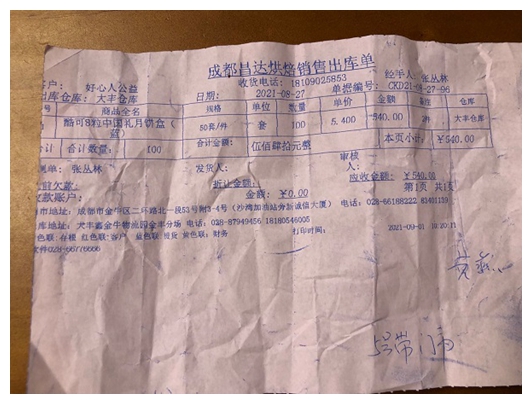 成都昌达烘焙销售出库单
收货电话：18109025853
客户： 好心人公益 日期： 2021-08-27 单据编号：CKD21-08-27-96 经手人：张丛林
出库仓库： 大丰仓库
号 商品全名 规格 单位 数量 单价 金额 备注 仓库
酷可8粒中国礼月饼盒（蓝） 50套/件 套 100 5.400 540.00 2件 大丰仓库
合计 合计数量： 100 合计金额： 伍佰肆拾元整 本页小计：￥540.00
制单：张丛林 发货人： 审核人：
折让金额： 应收金额： ￥540.00
前欠款： 金额： ￥0.00 第1页 共1页
收款账户：
市地址：成都市金牛区二环路北一段53号附3-4号（沙湾加油站旁新诚信大厦） 电话：028-66188222 81401119
库地址：大丰鑫金牛物流园金丰分场 电话：028-87949456 18180546005
白色联:存根 红色联:客户 蓝色联:提货 黄色联:财务 打印时间： 2021-09-01 10:20:11
软件028-66776666